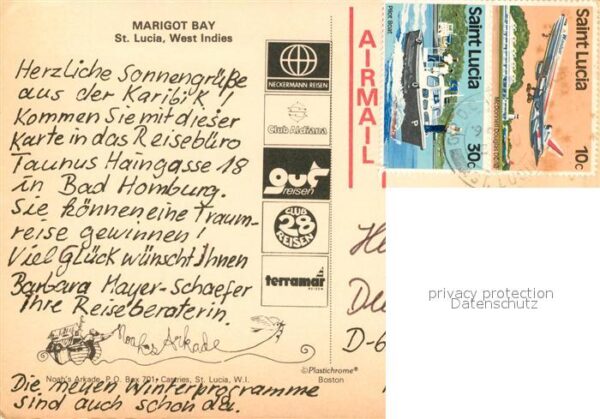 MARIGOT BAY
St. Lucia, West Indies
Herzliche Sonnengrüße
aus der Karibik!
Kommen Sie mit dieser
Karte in das Reisebüro
Taunus Haingasse 18
in Bad Homburg.
Sie können eine Traum-
reise gewinnen!
Viel Glück wünscht Ihnen
Barbara Mayer-Schaefer
Ihre Reiseberaterin.
Noahs Arkade
Noah's Arkade, P.O. Box 701, Castries, St. Lucia, W.I.
Die neuen Winterprogramme
sind auch schon da.
NECKERMANN REISEN
Club Aldiana
gut
reisen
CLUB
28
REISEN
terramar
REISEN
©Plastichrome®
Boston
AIRMAIL
Pilot Boat
Saint Lucia
30c
Saint Lucia
10c
D-6
privacy protection
Datenschutz